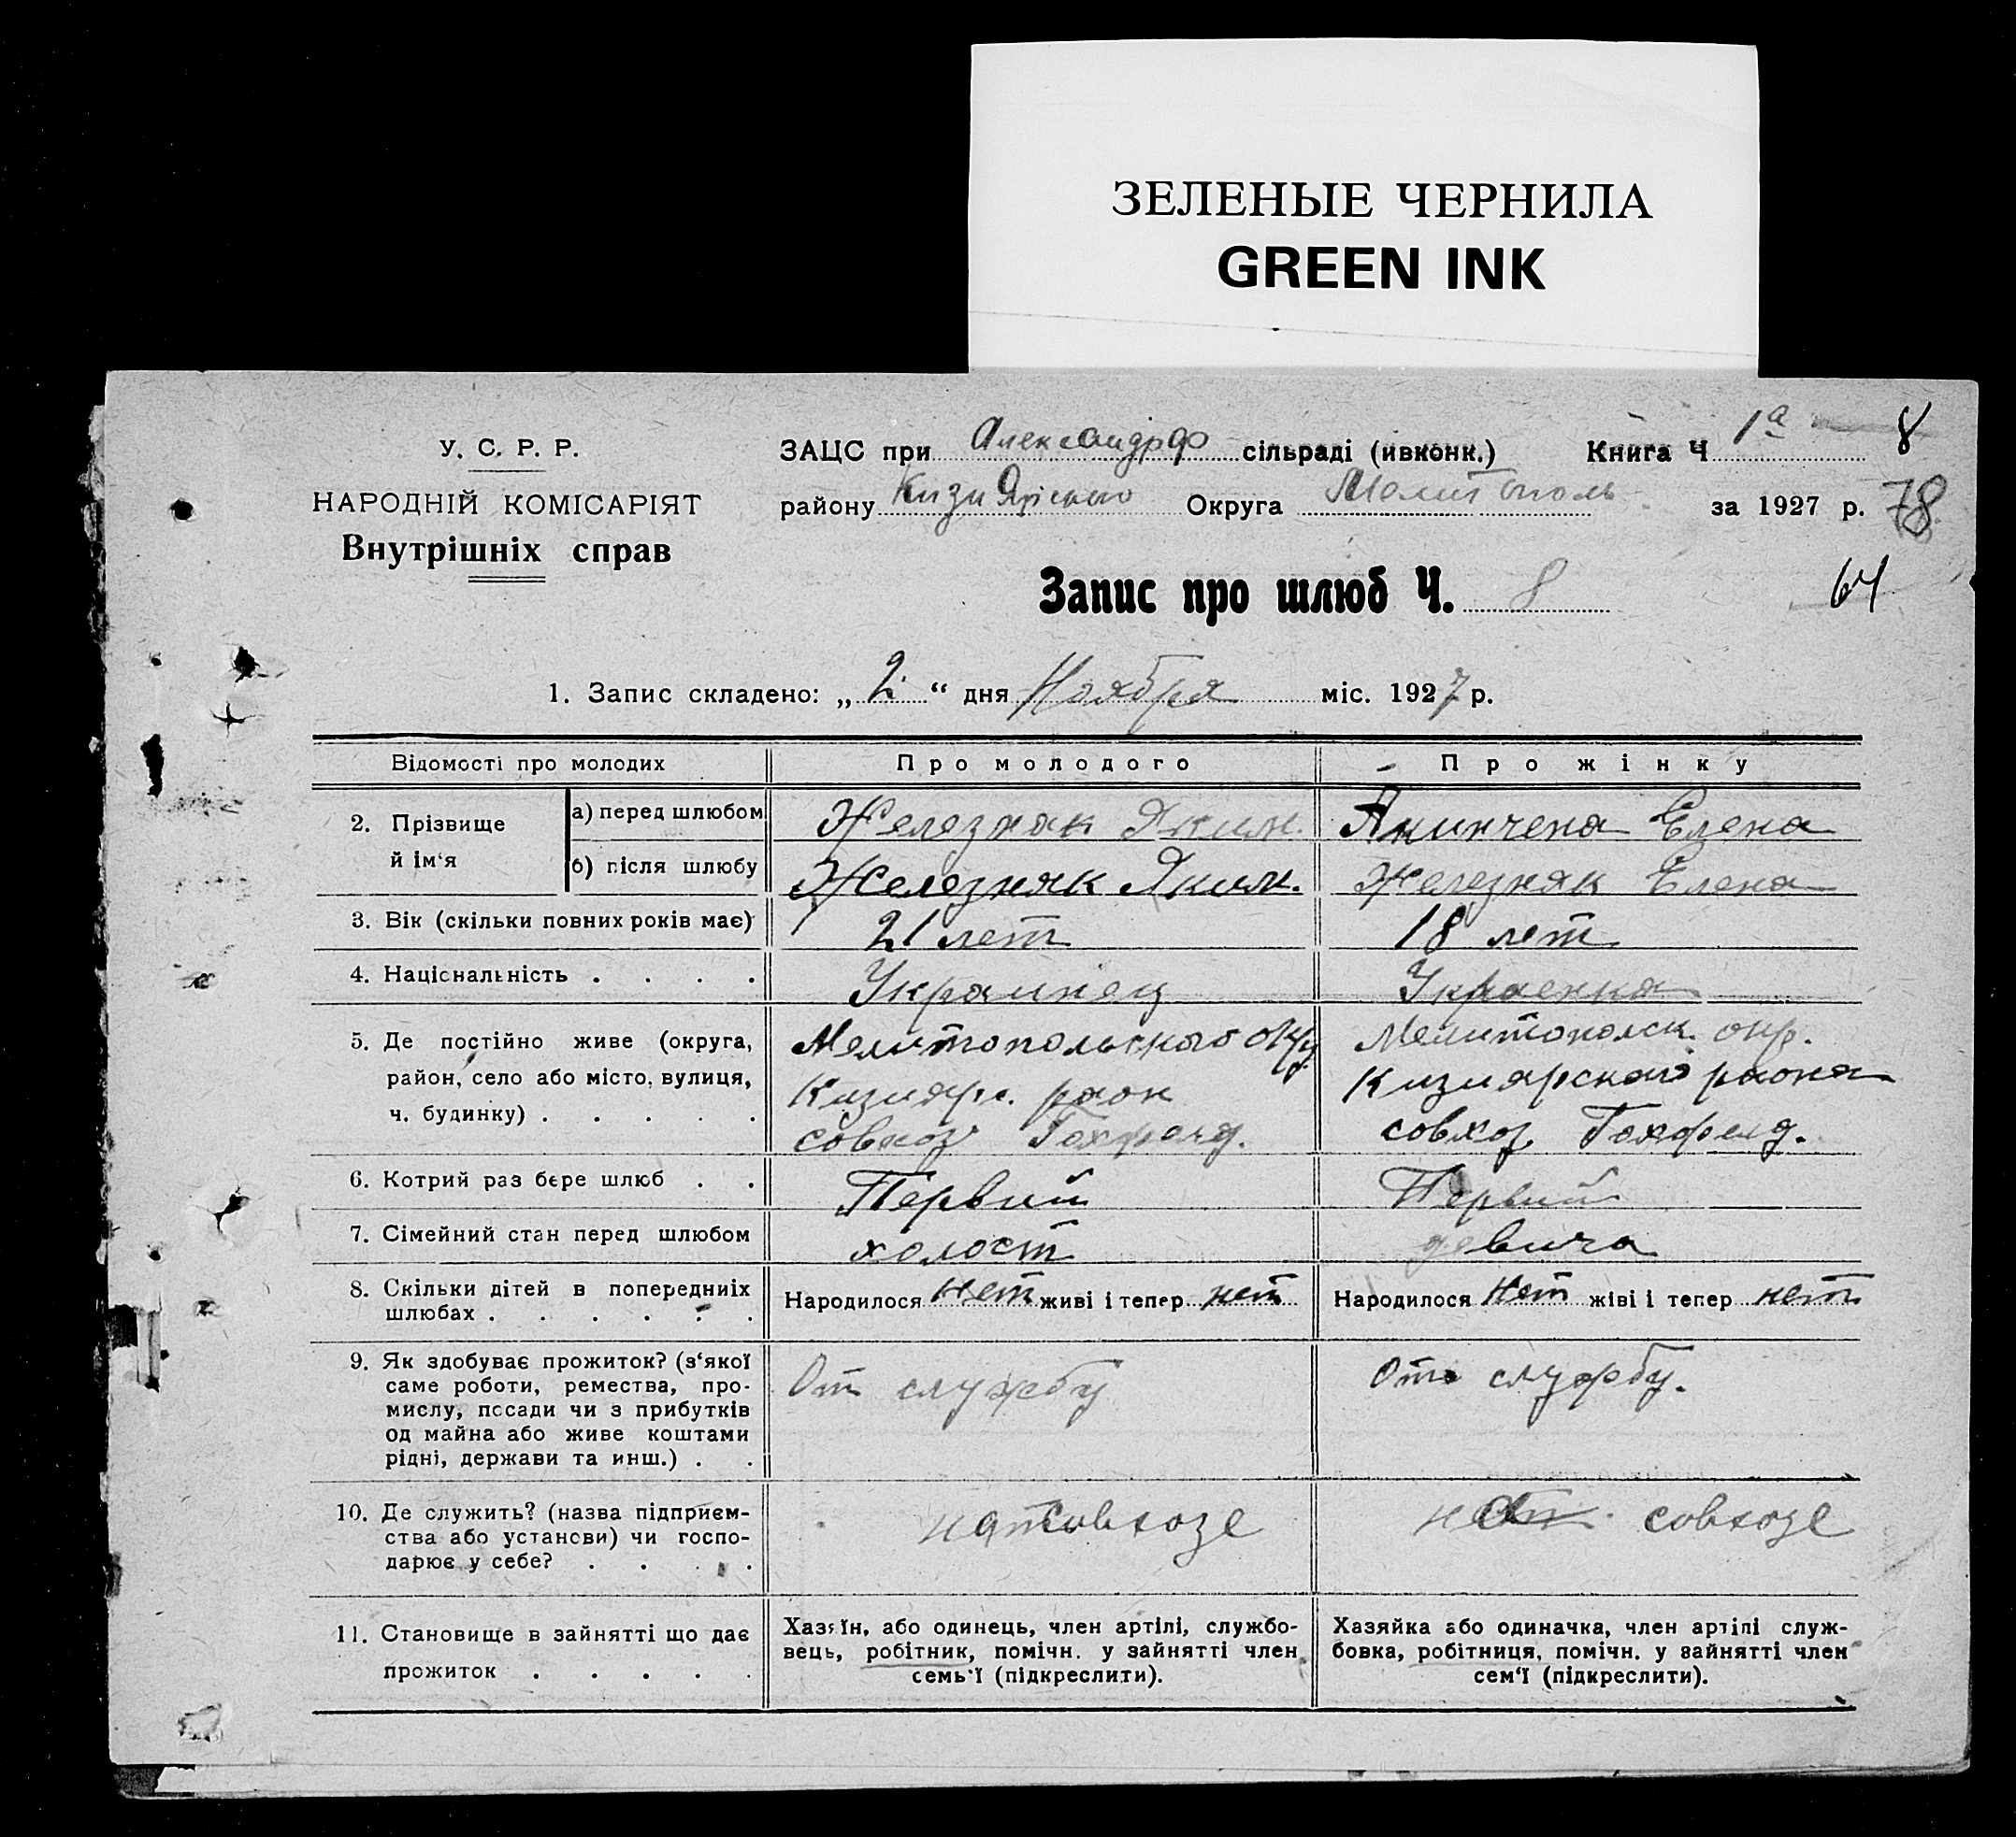 ЗЕЛЕНЫЕ ЧЕРНИЛА
GREEN INK
У. С. Р. Р.
НАРОДНІЙ КОМІСАРІЯТ
Внутрішніх справ
ЗАЦС при Александрф сільраді (ивконк.) Книга Ч 1а 8
району КизиЯрского Округа Мелитополь за 1927 р. 78
Запис про шлюб Ч. 8 64
1. Запис складено: „2“ дня Ноября міс. 1927 р.
Відомості про молодих Про молодого Про жінку
2. Прізвище й ім‘я
а) перед шлюбом Железняк Яким. Акинчена Елена
б) після шлюбу Железняк Яким. Железняк Елена
3. Вік (скільки повних років має) 21 лет 18 лет
4. Національність . . . . Украинец Украенка
5. Де постійно живе (округа,
район, село або місто, вулиця,
ч. будинку) . . . . .
Мелитопольского окр
Кизиярс. раон
совхоз Гохфелд.
Мелитополск. окр.
Кизиярского раона
совхоз Гохфелд.
6. Котрий раз бере шлюб . . Первий Первий
7. Сімейний стан перед шлюбом холост девича
8. Скільки дітей в попередниіх
шлюбах . . . . . .
Народилося нет живі і тепер нет
Народилося нет жіві і тепер нет
9. Як здобуває прожиток? (з‘якої
саме роботи, ремества, про-
мислу, посади чи з прибутків
од майна або живе коштами
рідні, держави та инш.) . .
От службу
От службу.
10. Де служить? (назва підприєм-
ства або установи) чи госпо-
дарює у себе? . . . .
совхозе
совхозе
11. Становище в зайнятті що дає
прожиток . . . . .
Хазяїн, або одинець, член артілі, службо-
вець, робітник, помічн. у зайнятті член
семь‘ї (підкреслити).
Хазяйка або одиначка, член артілі служ-
бовка, робітниця, помічн. у зайнятті член
сем‘ї (підкреслити).